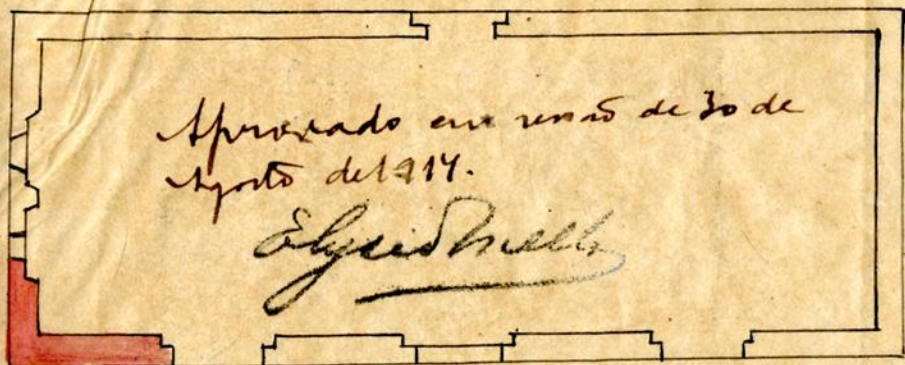 Aprovado em sessão de 30 de
Agosto de 1917.
Elysio Mello